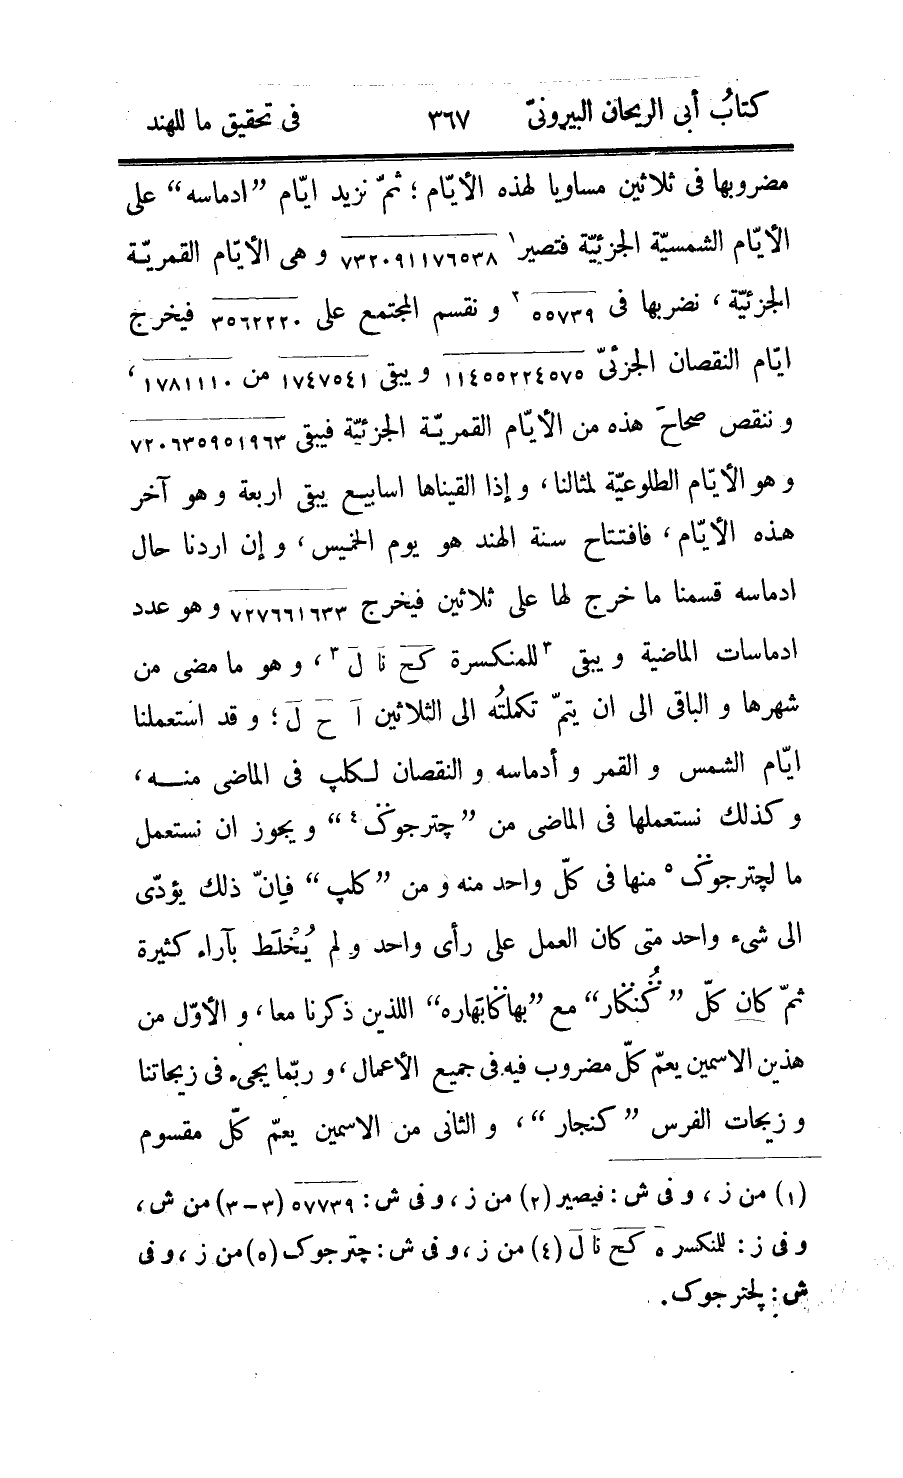 كتابُ أبى الريحان البيرونىّ ٣٦٧ فى تحقيق ما للهند
مضروبها فى ثلاثين مساويا لهذه الأيّام ؛ ثمّ نزيد ايّام ”ادماسه“ على
الأيّام الشمسيّة الجزئيّة فتصير١ ٧٣٢٠٩١١٧٦٥٣٨ و هى الأيّام القمريّة
الجزئيّة ، نضربها فى ٥٥٧٣٩ ٢ و نقسم المجتمع على ٣٥٦٢٢٢٠ فيخرج
ايّام النقصان الجزئىّ ١١٤٥٥٢٢٤٥٧٥ و يبقى ١٧٤٧٥٤١ من ١٧٨١١١٠ ،
و ننقص صحاحَ هذه من الأيّام القمريّة الجزئيّة فيبقى ٧٢٠٦٣٥٩٥١٩٦٣
و هو الأيّام الطلوعيّة لمثالنا ، و إذا القيناها اسابيع يبقى اربعة و هو آخر
هذه الأيّام ، فافتتاح سنة الهند هو يوم الخميس ، و إن اردنا حال
ادماسه قسمنا ما خرج لها على ثلاثين فيخرج ٧٢٧٦٦١٦٣٣ و هو عدد
ادماسات الماضية و يبقى ٣ للمنكسرة كح نا ل ٣ ، و هو ما مضى من
شهرها و الباقى الى ان يتمّ تكملتُه الى الثلاثين ا ح ل ؛ و قد استعملنا
ايّام الشمس و القمر و أدماسه و النقصان لكلپ فى الماضى منه ،
و كذلك نستعملها فى الماضى من ”چترجوݣ ٤“ و يجوز ان نستعمل
ما لچترجوݣ ٥ منها فى كلّ واحد منه و من ”كلپ“ فإنّ ذلك يؤدّى
الى شىء واحد متى كان العمل على رأى واحد و لم يُخْلَط بآراء كثيرة
ثمّ كان كلّ ”ݣُنݣار“ مع ”بهاݣابَهاره“ اللذين ذكرنا معا ، و الأوّل من
هذين الاسمين يعمّ كلّ مضروب فيه فى جميع الأعمال ، و ربّما يجىء فى زيجاتنا
و زيجات الفرس ”كنجار“ ، و الثانى من الاسمين يعمّ كلّ مقسوم
(١) من ز ، و فى ش : فيصير (٢) من ز ، و فى ش : ٥٧٧٣٩ (٣-٣) من ش ،
و فى ز : للنكسر ه كح نا ل (٤) من ز ، و فى ش : چترجوك (٥) من ز ، و فى
ش : پلحترجوك .